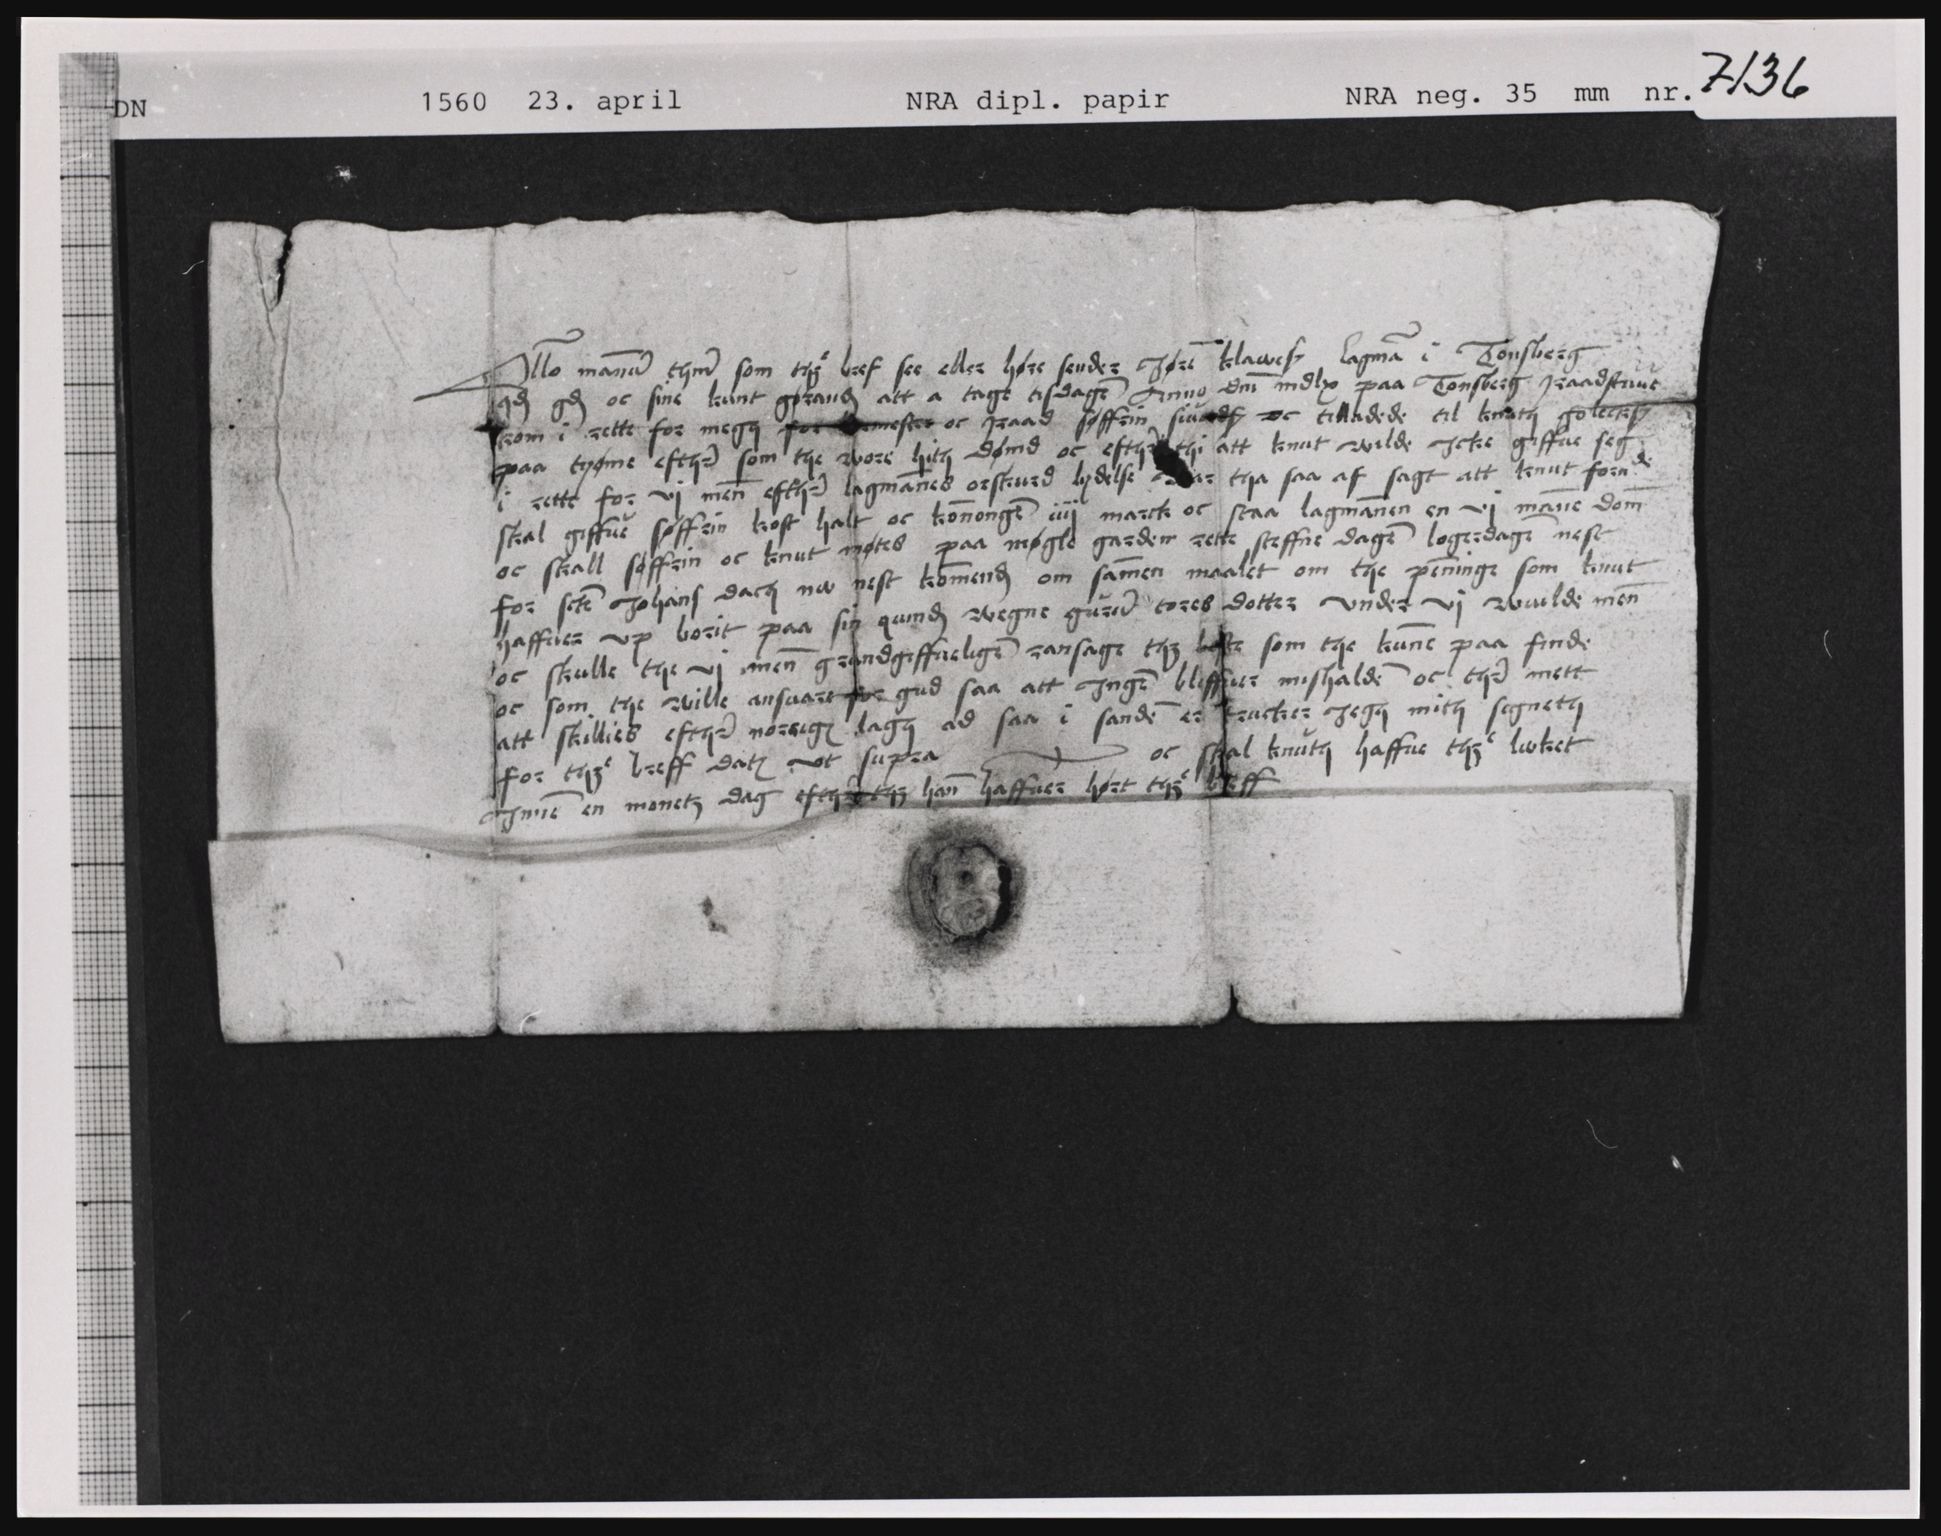 DN 1560 23. april NRA dipl. papir NRA neg. 35 mm nr. 7136
Allō mānē thm̄ som thꝫᵉ bref see eller høre sender Jørē klawesꝫ lagmā i Tonsberg
qꝫ gꝫ oc sine kunt gørandꝫ att a tage tisdagē Anno dm̄ mdlx paa Tonsberg raadstuue
kom i rette for megh for mester oc raad søffrin oc tilladede til knuth
paa tyøme efthꝛ som the wore hith dømd oc efthꝛ thi att knut wilde Icke giffue seg
i rette for vj men̄ efthꝛ lagmānes orskurd lydelse tha saa af sagt att knut forⁿᵈᵉ
skal giffue søffrin kost halt oc konongē iiij marck oc staa lagmānen en vj māne dom
oc skall søffrin oc knut møtes paa møgle garden rette steffne dagē logerdagē nest
for sctē Johans dach nw nest kōmendꝫ om sāmen maalet om the pēninge som knut
haffuer vp borit paa sin quindꝫ wegne tores dotter vnder vj wuilde men̄
oc skulle the vj men̄ grandgiffueligē ransage thꝫ beste som the kunē paa finde
oc som the wille ansuare for gud saa att Ingē bliffuer mishaldē oc thꝛ mett
att skillies efthꝛ noreigꝫ lagh ad saa i sandē er trucker Jegh mith segneth
for thꝫᵉ breff datꝫ vt supra oc skal knuth haffue thꝫᵉ lwket
Innē en monetꝫ dag efthꝛ thꝫ han̄ haffuer hørt thꝫᵉ breff